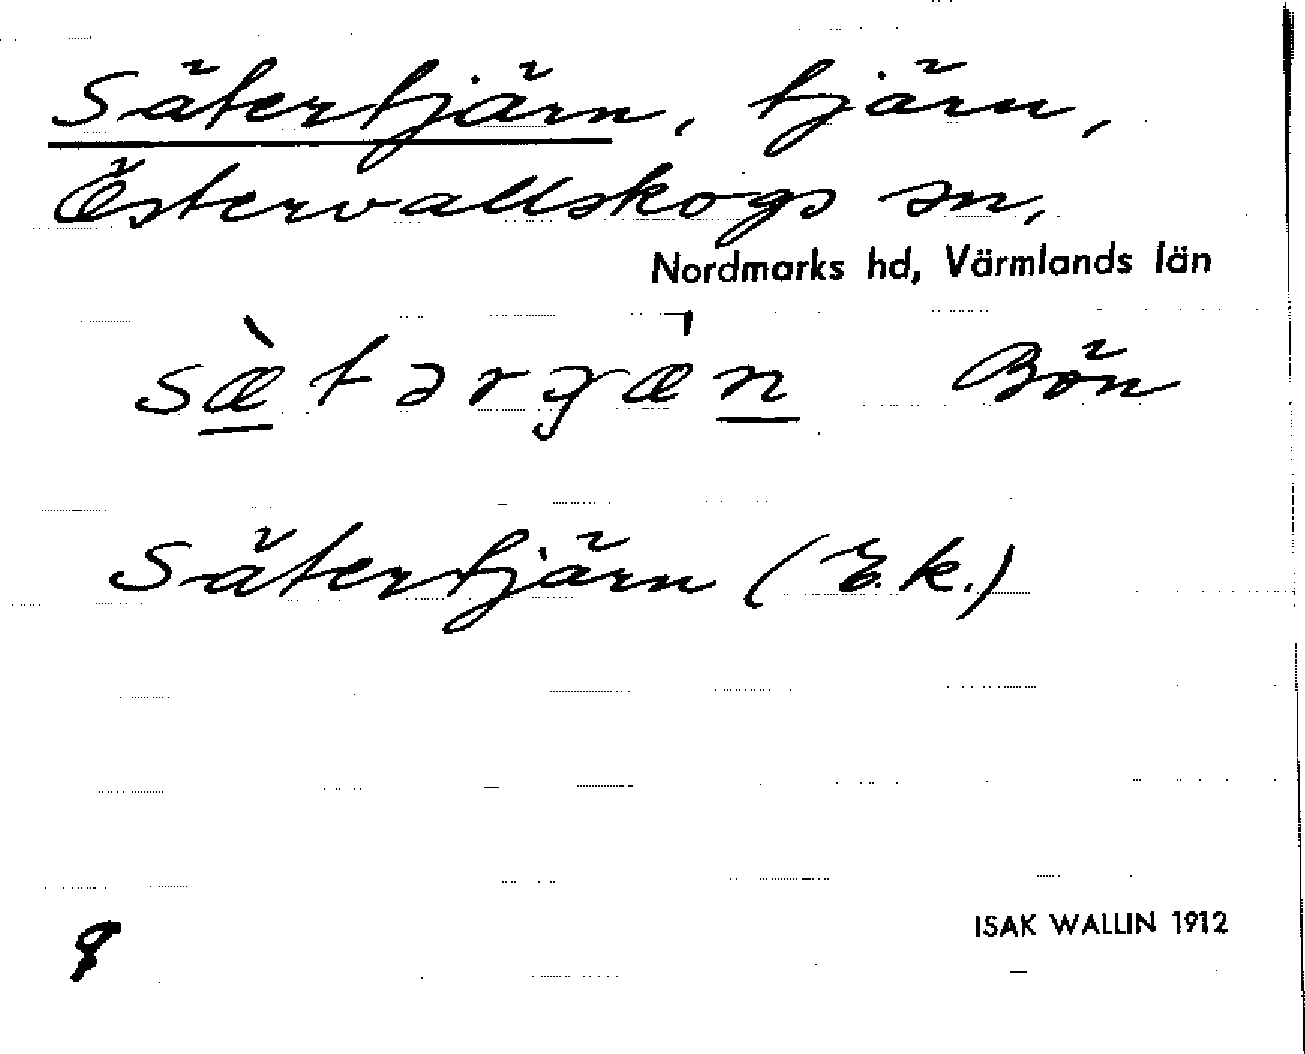 Sätertjärn, tjärn,
Östervallskogs sn,
Nordmarks hd, Värmlands län
sæ̀tərɟæ'n Bön
Sätertjärn (E.k.)
ISAK WALLIN 1912